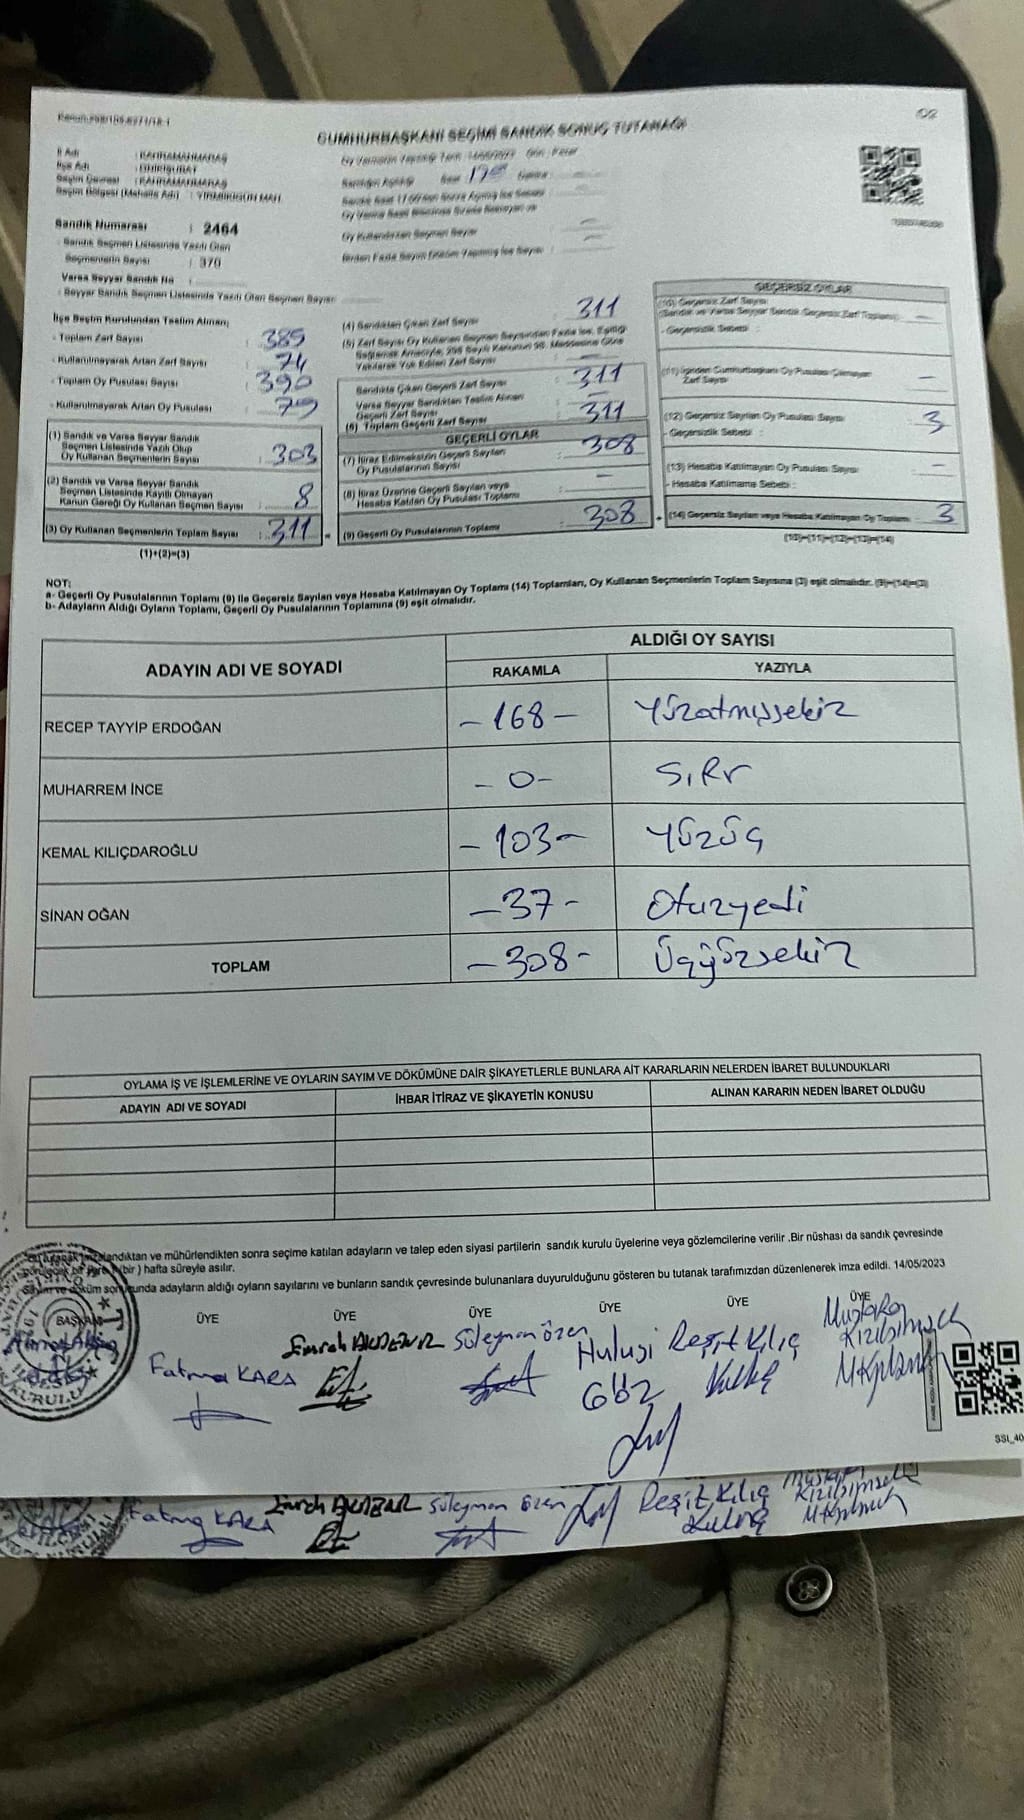 CUMHURBAŞKANI SEÇİMİ SANDIK SONUÇ TUTANAĞI
İl Adı : KAHRAMANMARAŞ
İlçe Adı : ONİKİŞUBAT
Seçim Çevresi : KAHRAMANMARAŞ
Seçim Bölgesi (Mahalle Adı) :
Sandık Numarası : 2464
- Sandık Seçmen Listesinde Yazılı Olan
Seçmenlerin Sayısı : 370
Varsa Seyyar Sandık No :
- Seyyar Sandık Seçmen Listesinde Yazılı Olan Seçmen Sayısı
Oy Kullandırılan Seçmen Sayısı
İlçe Seçim Kurulundan Teslim Alınan;
- Toplam Zarf Sayısı : 385
- Kullanılmayarak Artan Zarf Sayısı : 74
- Toplam Oy Pusulası Sayısı : 390
- Kullanılmayarak Artan Oy Pusulası : 79
(1) Sandık ve Varsa Seyyar Sandık
Seçmen Listesinde Yazılı Olup
Oy Kullanan Seçmenlerin Sayısı : 303
(2) Sandık ve Varsa Seyyar Sandık
Seçmen Listesinde Kayıtlı Olmayan
Kanun Gereği Oy Kullanan Seçmen Sayısı : 8
(3) Oy Kullanan Seçmenlerin Toplam Sayısı : 311
(1)+(2)=(3)
(4) Sandıktan Çıkan Zarf Sayısı : 311
(5) Zarf Sayısı Oy Kullanan Seçmen Sayısından Fazla ise, Eşitliği
Sağlamak Amacıyla, 298 Sayılı Kanunun 98. Maddesine Göre
Yakılarak Yok Edilen Zarf Sayısı : —
Sandıkta Çıkan Geçerli Zarf Sayısı : 311
Varsa Seyyar Sandıktan Teslim Alınan
Geçerli Zarf Sayısı : —
(6) Toplam Geçerli Zarf Sayısı : 311
GEÇERLİ OYLAR
(7) İtiraz Edilmeksizin Geçerli Sayılan
Oy Pusulalarının Sayısı : 308
(8) İtiraz Üzerine Geçerli Sayılan veya
Hesaba Katılan Oy Pusulası Toplamı : —
(9) Geçerli Oy Pusulalarının Toplamı : 308
GEÇERSİZ OYLAR
(10) Geçersiz Zarf Sayısı
(Sandık ve Varsa Seyyar Sandık Geçersiz Zarf Toplamı) : —
- Geçersizlik Sebebi :
(11) İçinden Cumhurbaşkanı Oy Pusulası Çıkmayan
Zarf Sayısı : —
(12) Geçersiz Sayılan Oy Pusulası Sayısı : 3
- Geçersizlik Sebebi :
(13) Hesaba Katılmayan Oy Pusulası Sayısı : —
- Hesaba Katılmama Sebebi :
(14) Geçersiz Sayılan veya Hesaba Katılmayan Oy Toplamı : 3
(10)+(11)+(12)+(13)=(14)
NOT:
a- Geçerli Oy Pusulalarının Toplamı (9) ile Geçersiz Sayılan veya Hesaba Katılmayan Oy Toplamı (14) Toplamları, Oy Kullanan Seçmenlerin Toplam Sayısına (3) eşit olmalıdır. (9)+(14)=(3)
b- Adayların Aldığı Oyların Toplamı, Geçerli Oy Pusulalarının Toplamına (9) eşit olmalıdır.
ADAYIN ADI VE SOYADI
ALDIĞI OY SAYISI
RAKAMLA YAZIYLA
RECEP TAYYİP ERDOĞAN -168- Yüzatmışsekiz
MUHARREM İNCE -0- Sıfır
KEMAL KILIÇDAROĞLU -103- Yüzüç
SİNAN OĞAN -37- Otuzyedi
TOPLAM -308- Üçyüzsekiz
OYLAMA İŞ VE İŞLEMLERİNE VE OYLARIN SAYIM VE DÖKÜMÜNE DAİR ŞİKAYETLERLE BUNLARA AİT KARARLARIN NELERDEN İBARET BULUNDUKLARI
ADAYIN ADI VE SOYADI İHBAR İTİRAZ VE ŞİKAYETİN KONUSU ALINAN KARARIN NEDEN İBARET OLDUĞU
imzalandıktan ve mühürlendikten sonra seçime katılan adayların ve talep eden siyasi partilerin sandık kurulu üyelerine veya gözlemcilerine verilir .Bir nüshası da sandık çevresinde
(bir ) hafta süreyle asılır.
döküm sonucunda adayların aldığı oyların sayılarını ve bunların sandık çevresinde bulunanlara duyurulduğunu gösteren bu tutanak tarafımızdan düzenlenerek imza edildi. 14/05/2023
BAŞKAN ÜYE ÜYE ÜYE ÜYE ÜYE ÜYE
Fatma KARA Emrah AKDENİZ Süleyman özen Hulusi GÖZ Reşit Kılıç Mustafa Kızılbımseck
SSI_40
Fatma KARA Süleyman özen Reşit Kılıç